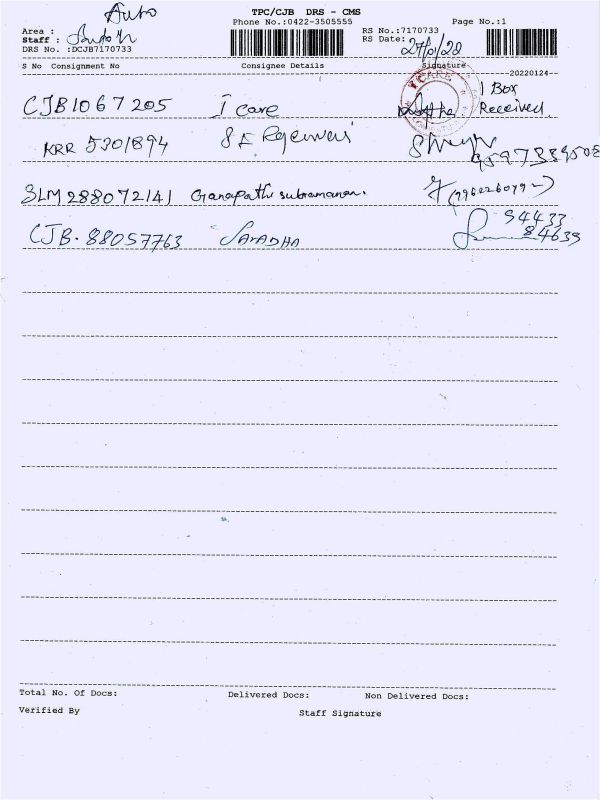 Auto
TPC/CJB DRS - CMS
Phone No.:0422-3505555 Page No.:1
Area :
Staff :
DRS No. :DCJB7170733
RS No.:7170733
RS Date:
S No Consignment No Consignee Details Signature
20220124
CJB1067205 I care 1 Box
Received.
ICARE
KRR 5301894
SLM288072141 Ganapathi subramanian.
CJB. 88057763 SARADHA 94433
84633
Total No. Of Docs: Delivered Docs: Non Delivered Docs:
Verified By Staff Signature